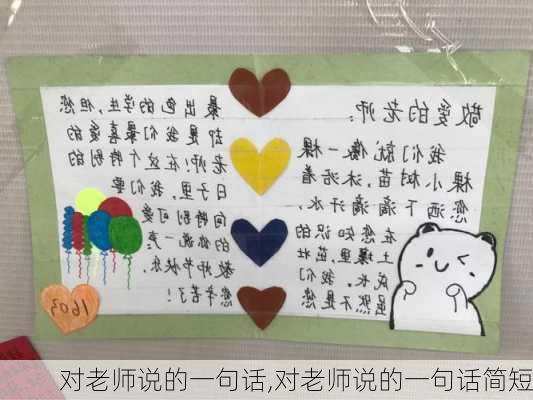 敬爱的老师:
我们就像一棵
棵小树苗,沐浴着
您洒下滴滴汗水,
在您知识的
土壤里,茁壮
成长。我们
虽然不是您
最出色的学生,但您
却是我们最喜爱的
老师.在这个特别的
日子里,我们要
向特别可爱
的您说一声:
教师节快乐.
您辛苦了!
1603
对老师说的一句话,对老师说的一句话简短